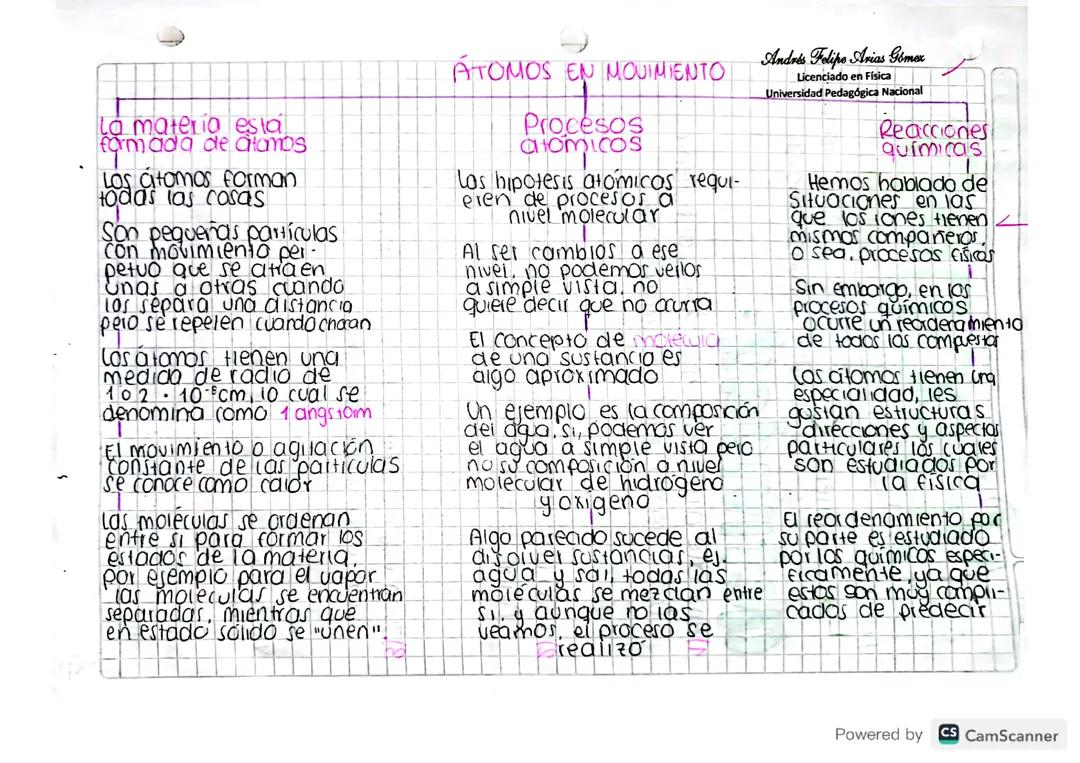 ÁTOMOS EN MOVIMIENTO
Andrés Felipe Arias Gómez
Licenciado en Física
Universidad Pedagógica Nacional
La materia está
formada de átomos
Los átomos forman
todas las cosas
Son pequeñas partículas
con movimiento per-
petuo que se atraen
unas a otras cuando
las separa una distancia
pero se repelen cuando chocan
Los átomos tienen una
medida de radio de
1 o 2 · 10⁻⁸cm, lo cual se
denomina como 1 angstom
El movimiento o agitación
constante de las partículas
se conoce como calor
Las moléculas se ordenan
entre sí para formar los
estados de la materia,
por ejemplo para el vapor
las moléculas se encuentran
separadas, mientras que
en estado sólido se "unen".
Procesos
atómicos
Las hipotesis atómicas requi-
eren de procesos a
nivel molecular
Al ser cambios a ese
nivel, no podemos verlos
a simple vista, no
quiere decir que no ocurra
El concepto de molécula
de una sustancia es
algo aproximado
Un ejemplo es la composición
del agua, si, podemos ver
el agua a simple vista pero
no su composición a nivel
molecular de hidrógeno
y oxígeno
Algo parecido sucede al
disolver sustancias, ej.
agua y sal, todas las
moléculas se mezclan entre
sí, y aunque no las
veamos, el proceso se
realizó
Reacciones
químicas
Hemos hablado de
situaciones en las
que los iones tienen
mismos compañeros,
o sea, procesos físicos
Sin embargo, en los
procesos químicos
ocurre un reorderamiento
de todos los compuestos
Los átomos tienen una
especialidad, les
gustan estructuras
direcciones y aspectos
particulares los cuales
son estudiados por
la física
El reordenamiento por
su parte es estudiado
por los químicos especi-
ficamente, ya que
estos son muy compli-
cados de predecir
Powered by CS CamScanner